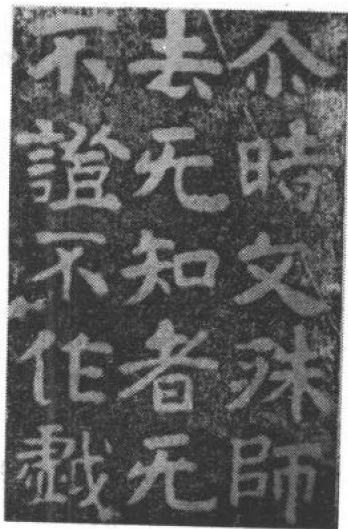 尒時文殊師
去无知者无
不證不作戱